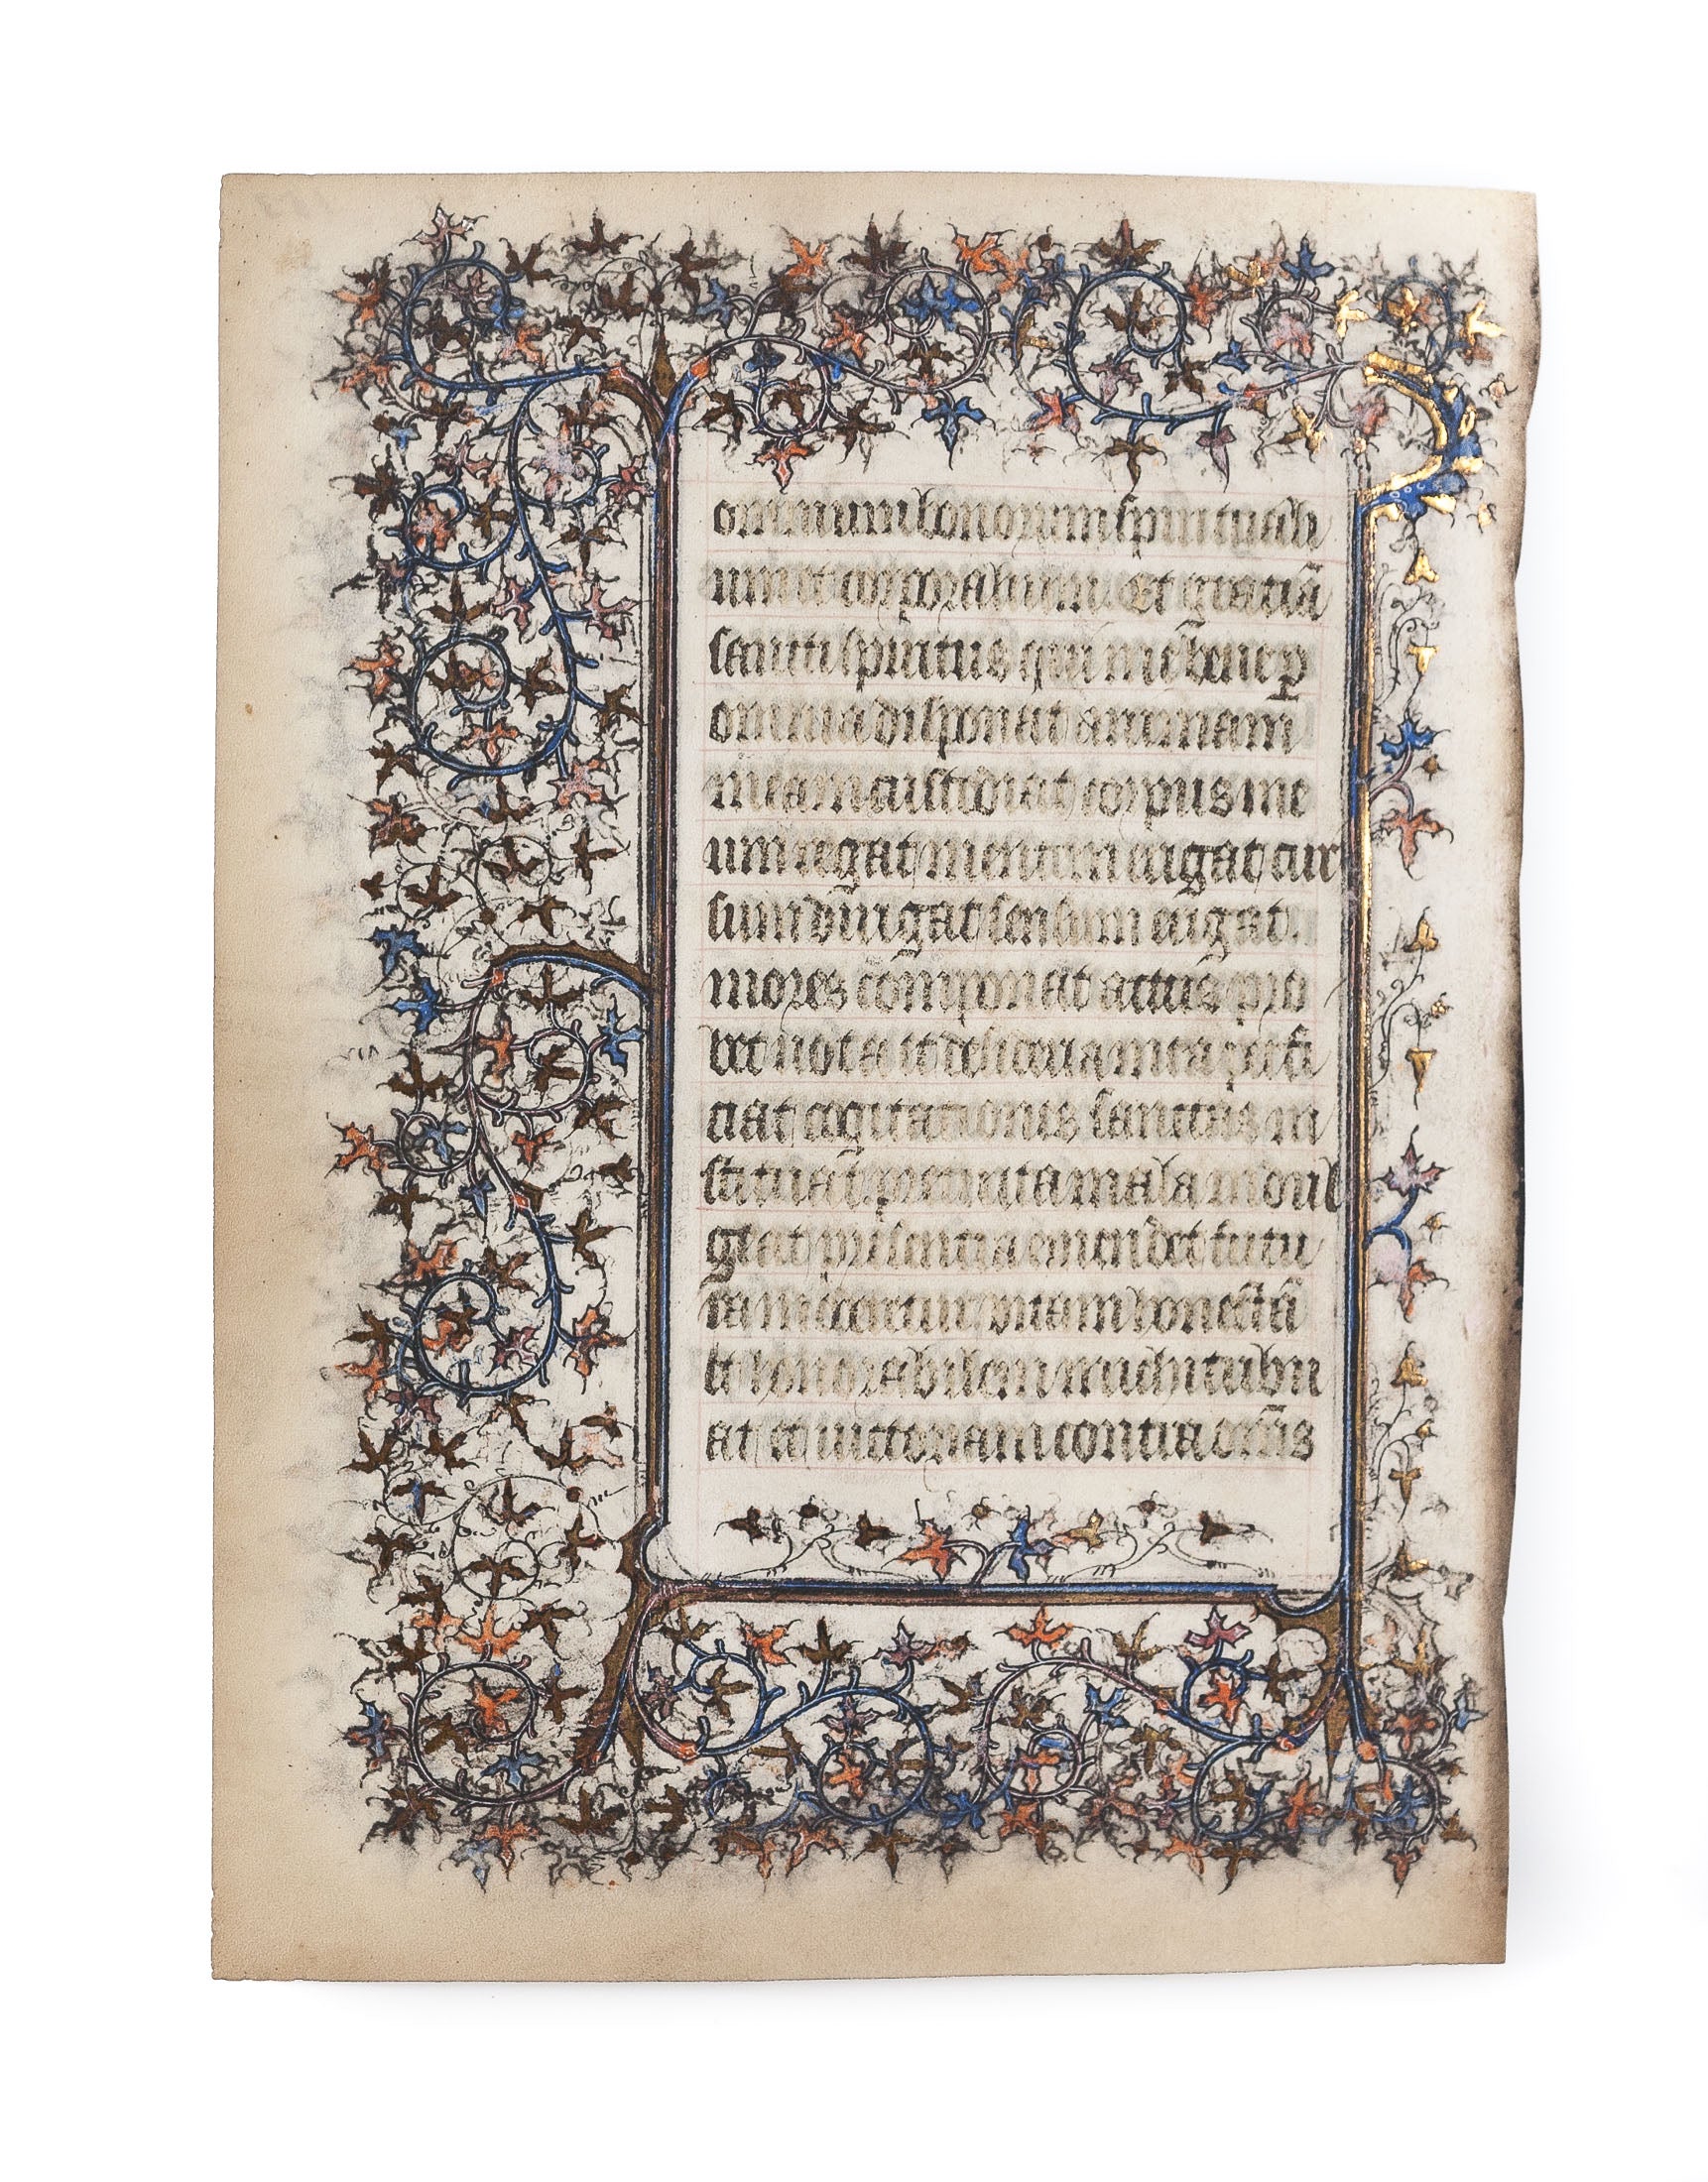 omnium bonorum spirituali
um et corporalium. Et graciā
sancti spiritus qui me bene ꝑ
omnia disponat animam
meam custodiat corpus me
um regat mentem erigat cur
sum dirigat sensum erigat.
mores componat actus pro
bet uota et desideria mea perfi
ciat cogitationes sanctas in
stituat preterita mala indul
geat presentia emendet futu
ra moderetur uitam honestā
et honorabilem michi tribu
at et uictoriam contra om̄s